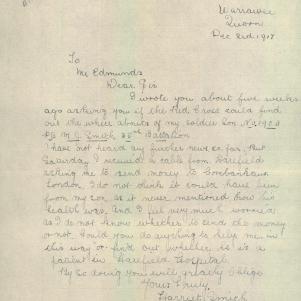 Warrawee
Quorn
Dec 2nd 1918
To
Mr Edmunds
Dear Sir
I wrote you about five weeks
ago asking you if the Red Cross could find
out the where abouts of my soldier Son
Smith Battalion
I have not heard any further news so far, but
Saturday I received a cable from Harefield
asking me to send money to Combankaus
London. I do not think it could have been
from my son as it never mentioned how his
health was. And I feel very much worried
as I do not know whether to send the money
or not. Could you do anything to help me in
this way or find out whether is a
patient in Harefield Hospital.
By so doing you will greatly oblige
Yours truly
Harriet Smith